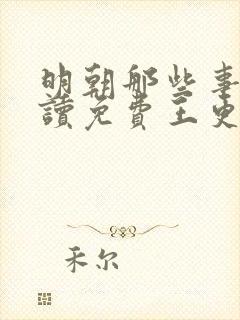 明朝那些事
讀免費王史
禾尔